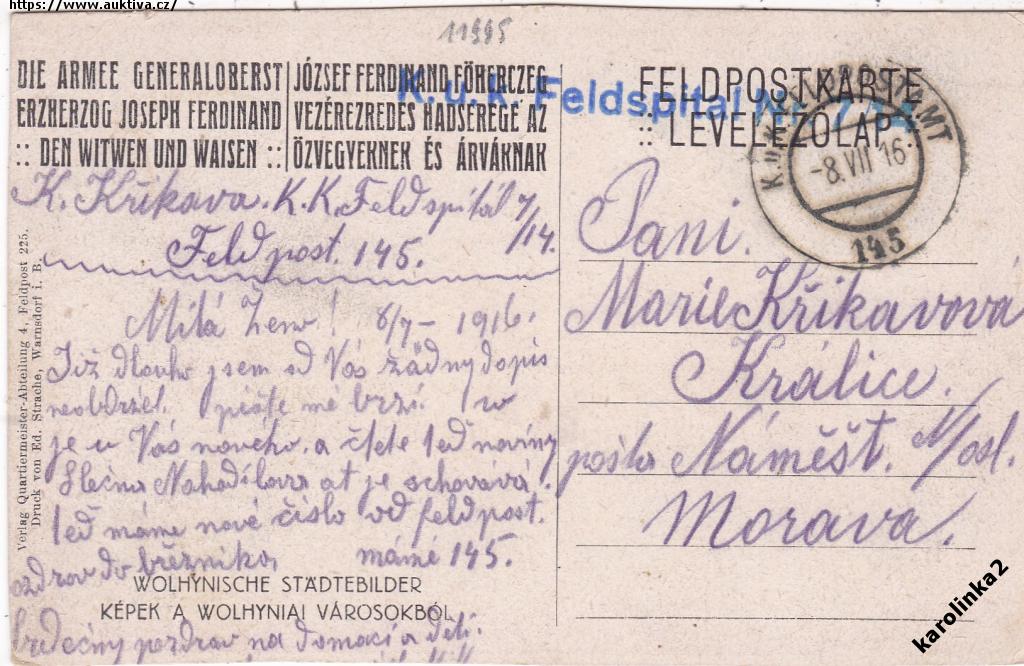 https://www.auktiva.cz/
11995
DIE ARMEE GENERALOBERST
ERZHERZOG JOSEPH FERDINAND
:: DEN WITWEN UND WAISEN ::
JÓZSEF FERDINAND FŐHERCZEG
VEZÉREZREDES HADSEREGE AZ
ÖZVEGYEKNEK ÉS ÁRVÁKNAK
K. u. k. Feldspital Nr. 7/14
FELDPOSTKARTE
:: LEVELEZŐLAP ::
K.u.K. AMT
-8.VII 16
145
K. Křikava. K.K. Feldspitál 7/14.
Feldpost. 145.
Milá ženo! 6/7 – 1916.
Již dlouho jsem od Vás žádny dopis
neobdržel. pište mě brzi.
je u Vás nového. a čtete teď noviny
Slečna at je schovává.
teď máme nové číslo od feldpost.
ozdrav do březnika, mámé 145.
WOLHYNISCHE STÄDTEBILDER
KÉPEK A WOLHYNIAI VÁROSOKBÓL
Srdečny pozdrav na domací a děti.
Pani.
Marie Křikavová
Králice.
pošta Náměšt. N/osl.
Morava.
Verlag Quartiermeister-Abteilung 4, Feldpost 225.
Druck von Ed. Strache, Warnsdorf i. B.
karolinka2